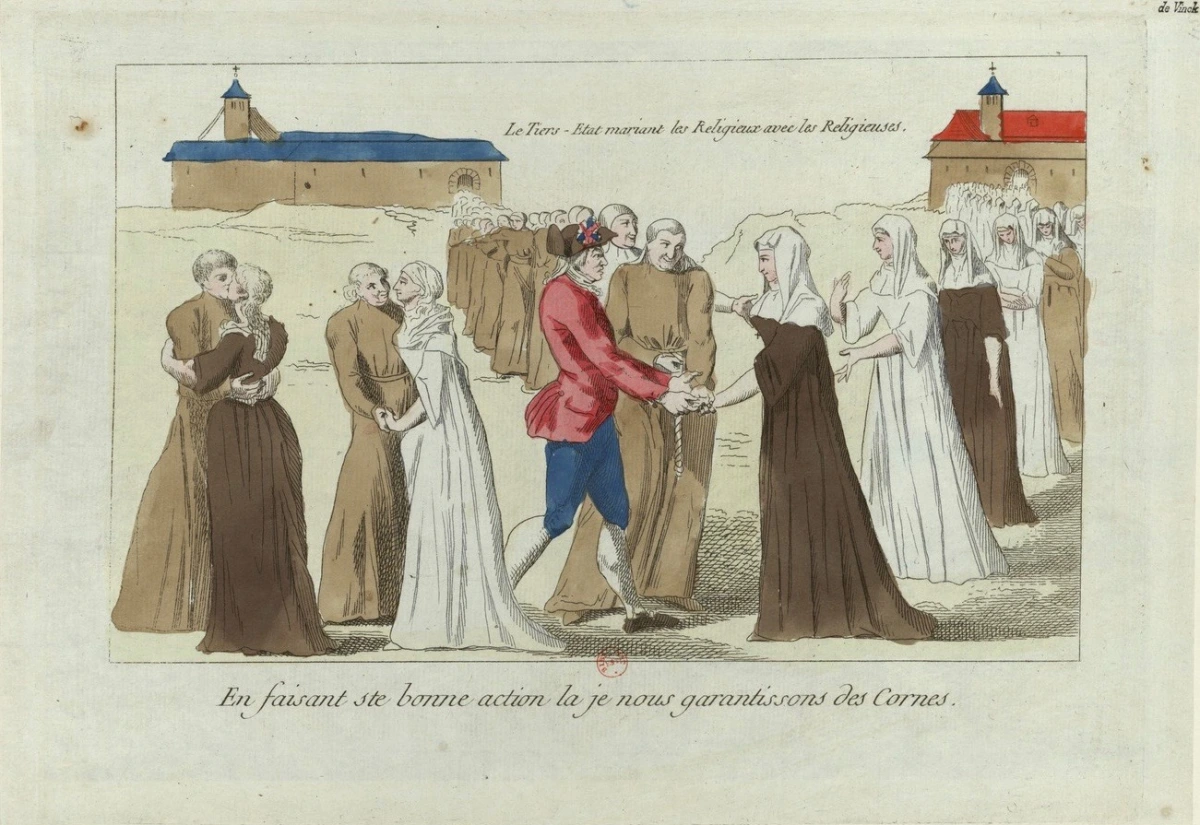 de Vinck
Le Tiers-Etat mariant les Religieux avec les Religieuses.
En faisant ste bonne action la je nous garantissons des Cornes.